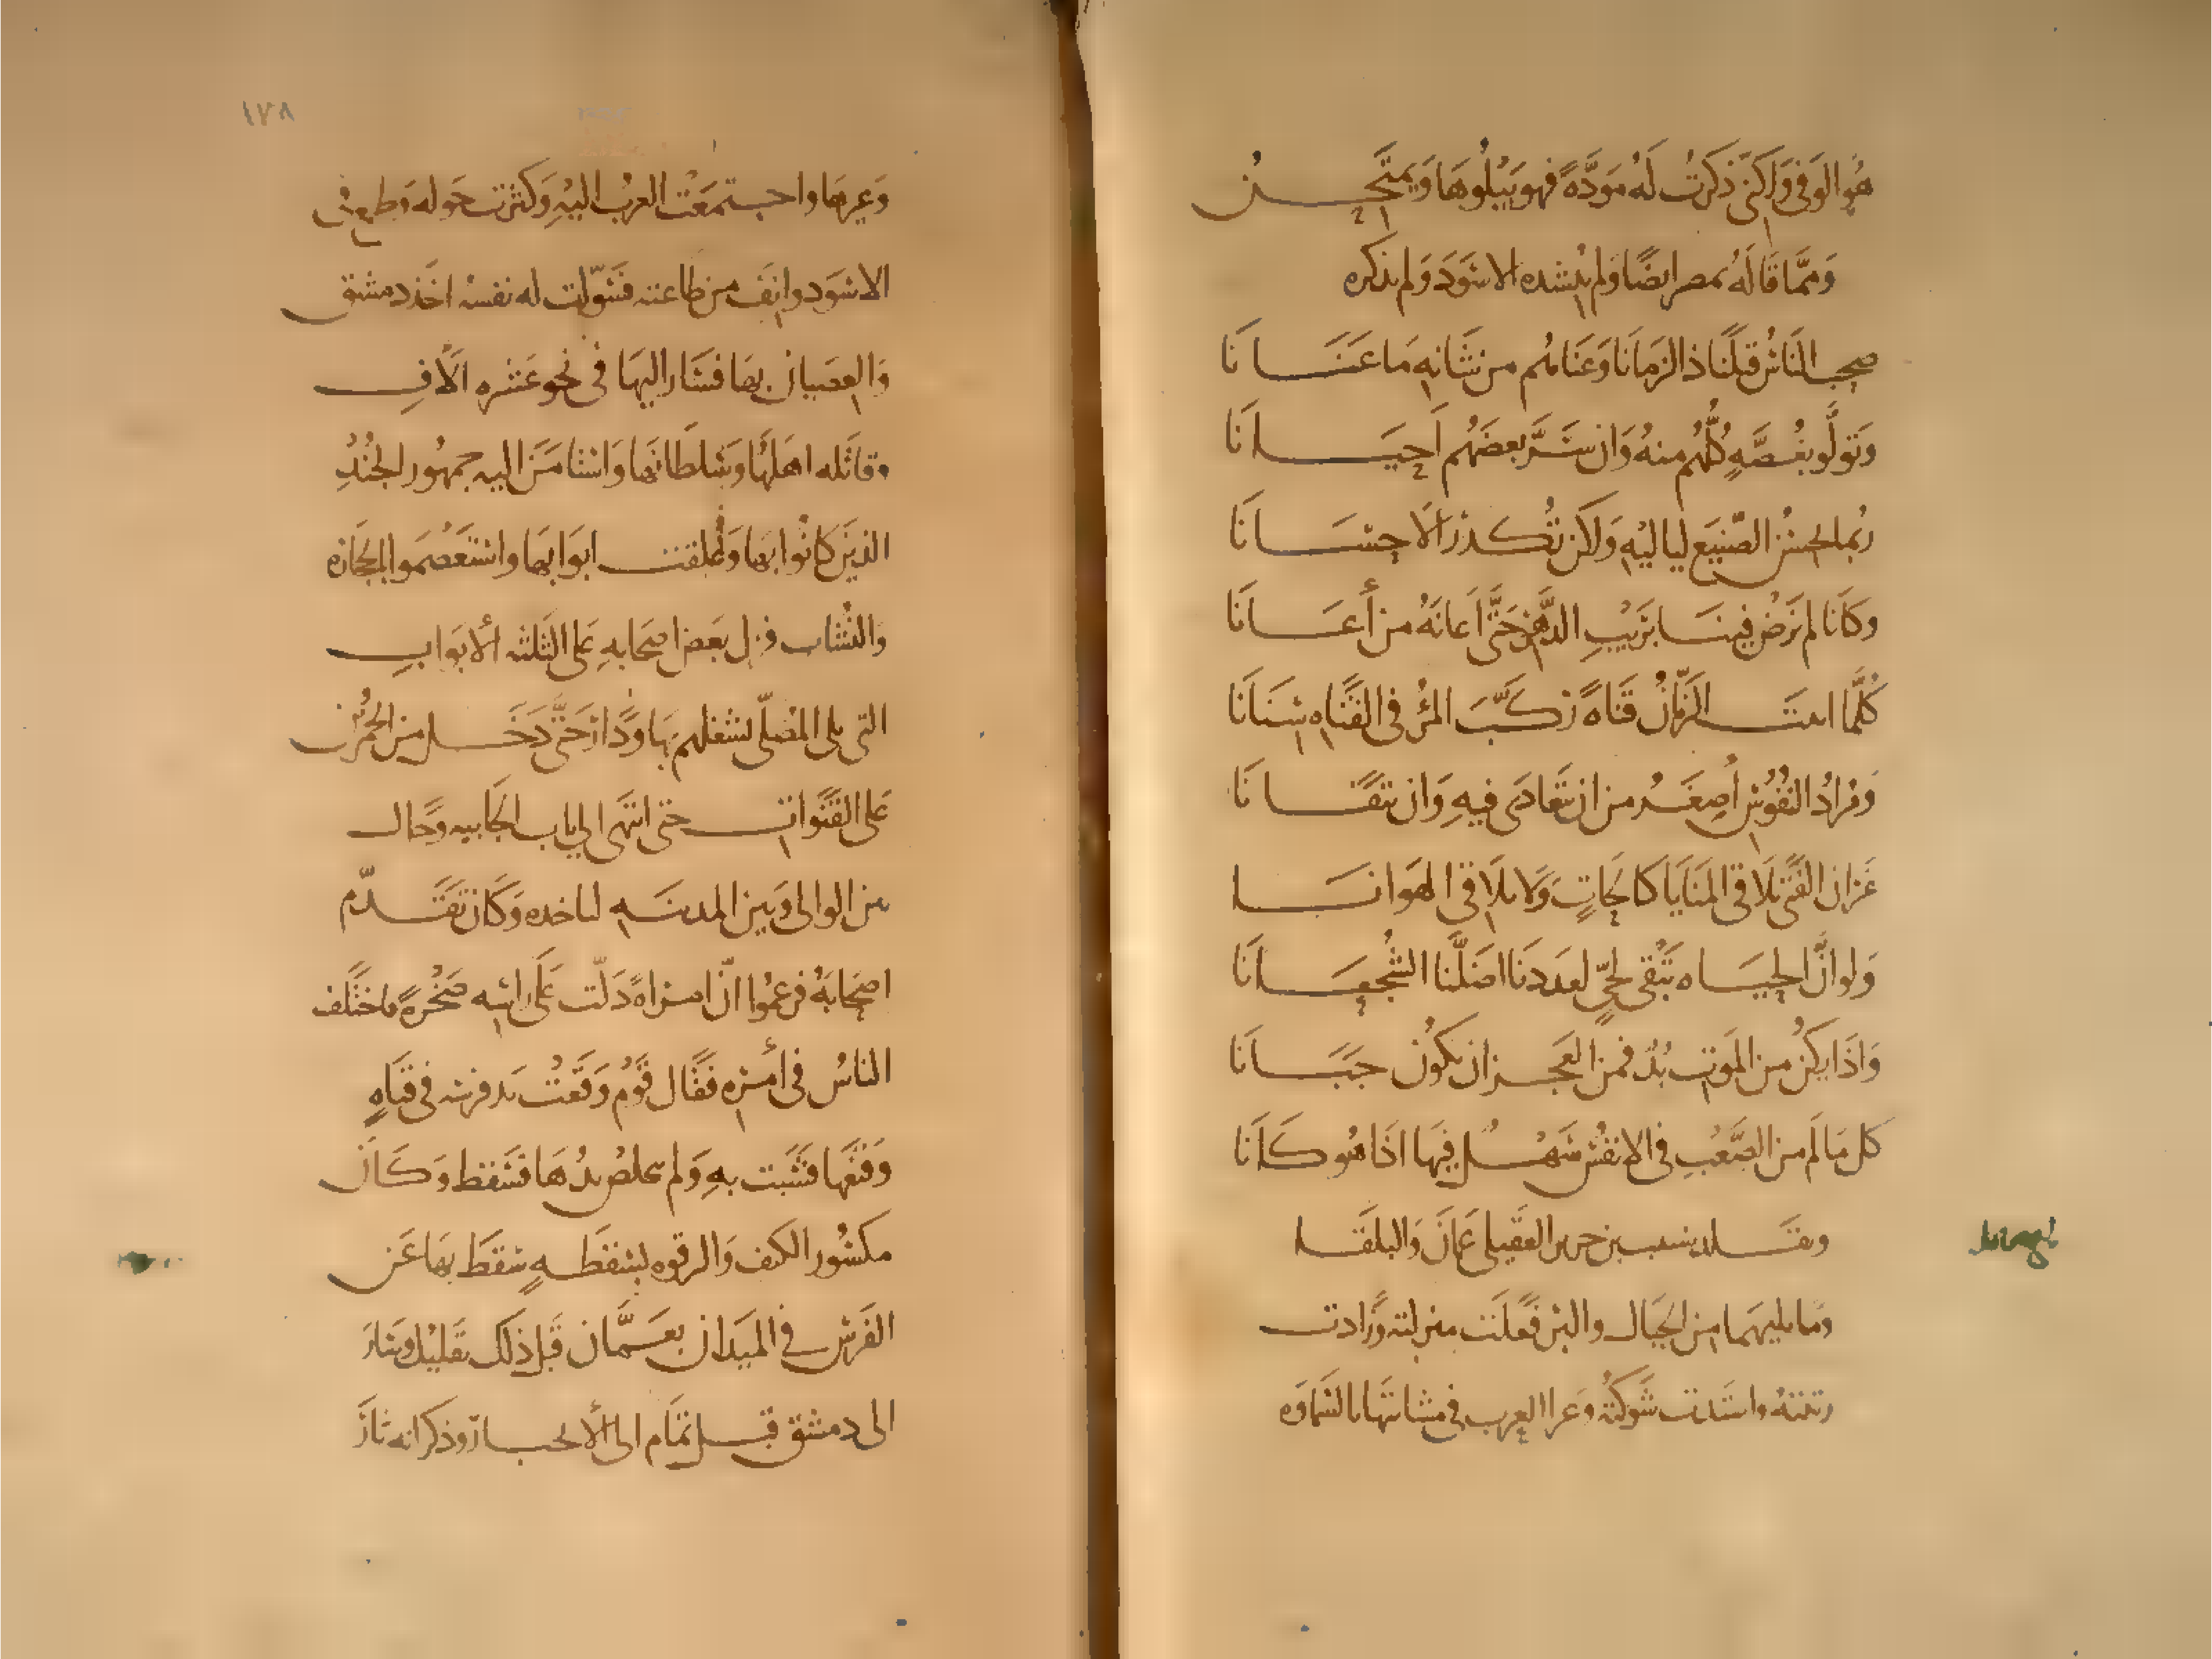 هُوَ الوَفِيُّ وَلَكِنّي ذَكَرْتُ لَهُ مَوَدَّةً فهو يَبْلُوهَا وَيَمْتَحِــنُ
وَمِمَّا قَالَهُ بمصر ايضًا وَلم يُنشده الاسْوَدَ وَلم يذكره
صحِبَ النَاسُ قبلَنَا ذا الزمَانَا وَعَنَاهُم من شَانِهِ مَا عَنَــانَا
وَتَولَّو بغُصَّةٍ كُلُّهُم منهُ وَان سَرَّ بعضَهُم اَحيَــانَا
رُبما تحسنُ الصَّنيعَ لياليْهِ وَلاكن تُكَدر الاحِسَــانَا
وكَانا لم نَرْضَ فينَــا بِرَيْبِ الدَّهْر حَتَّى اَعانَهُ من أَعَــانَا
كُلَّمَا انبتَــ الزمَانُ قَنَاةً ركَّبَ المرْءُ في القَنَاةِ سِنَانَا
وَمُرادُ النُفُوسِ أَصغَــرُ من ان نتَعَادَى فيهِ وَان نتفَــانَا
غَيرَ ان الفتَى يُلَاقي المنَايَا كَالحَاتٍ وَلَا يلَاقي الهَوانَــا
وَلو انَّ الحيَــاة تَبْقى لحيٍّ لعددنَا اضلَّنَا الشُجعَــانَا
وَاذَا لم يكن من المَوتِ بُدٌّ فمن العَجــز ان تكُونَ جبَــانَا
كل مَا لَم يكن من الصَّعْبِ في الانفُسِ سَهْــلٌ فيهَا اذَا هُو كَانَا
وتقــلد شبيب بن جرير العقيلي عَمانَ وَالبلقَــا
وَمَا يليهَما من الجبَال فعَلَت منزلته وَزادت
رتبته واشتدت شوكته وَغزا العرب في مشاتيها بالسَماوَه
١٧٨
وَغيرهَا واجتــمعَت العربُ اليْهِ وَكثرَت حَوله وَطمع في
الاسْوَد وانِفَ من طاعته فسَوّلت له نفسُه اخذ دمشق
وَالعِصيان بهَا فسَار اليهَا في نحو عَشره الَافِ
وقاتله اهلهَا وسُلطَانهَا وَاستامَنَ اليه جمهُور الجُنْدِ
الذينَ كَانُوا بهَا وَغلقت ابوَابهَا واستعصَموا بالحجَاره
وَالنُشّاب فنزل بَعض اصحَابهِ عَلى الثلثه الابوَابِ
التي تلي المُصَلّى لشغلهم بهَا وَدَار حَتَّى دَخَــل من الحُمْريين
عَلى القنوَاتــ حتى انتهَى الى باب الجَابيه وحَال
بين الوالى وَبين المدينَــهِ لياخذه وَكَان يَتقَــدّم
اصحَابَهُ فزعمُوا انّ امراةً دَلّت عَلَى راسِه صَخْرةً فاختَلف
الناسُ في أمرِه فقَال قَومٌ وَقعَتْ يد فرسه في قنَاةٍ
فَشَبَّت بهِ وَلم تخلص يدُهَا فسقط وَكَانَ
مكسُور الكتف وَالترقوه لسقطَــهٍ سَقطَ بهَا عَن
الفَرس في الميدَان بعَــمَّان قَبل ذلكَ بقَليل وَسَار
الى دمشق قبــل تمَام الانجبــار وَذكر انه ثار